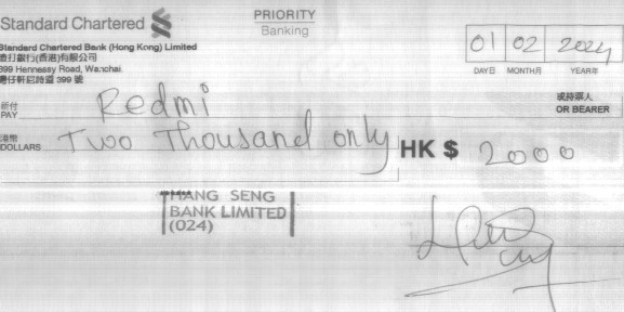 Standard Chartered
PRIORITY
Banking
Standard Chartered Bank (Hong Kong) Limited
渣打銀行(香港)有限公司
399 Hennessy Road, Wanchai.
灣仔軒尼詩道 399 號
01 02 2024
DAY日 MONTH月 YEAR年
祈付
PAY Redmi
或持票人
OR BEARER
港幣
DOLLARS Two Thousand only HK $ 2000
HANG SENG
BANK LIMITED
(024)